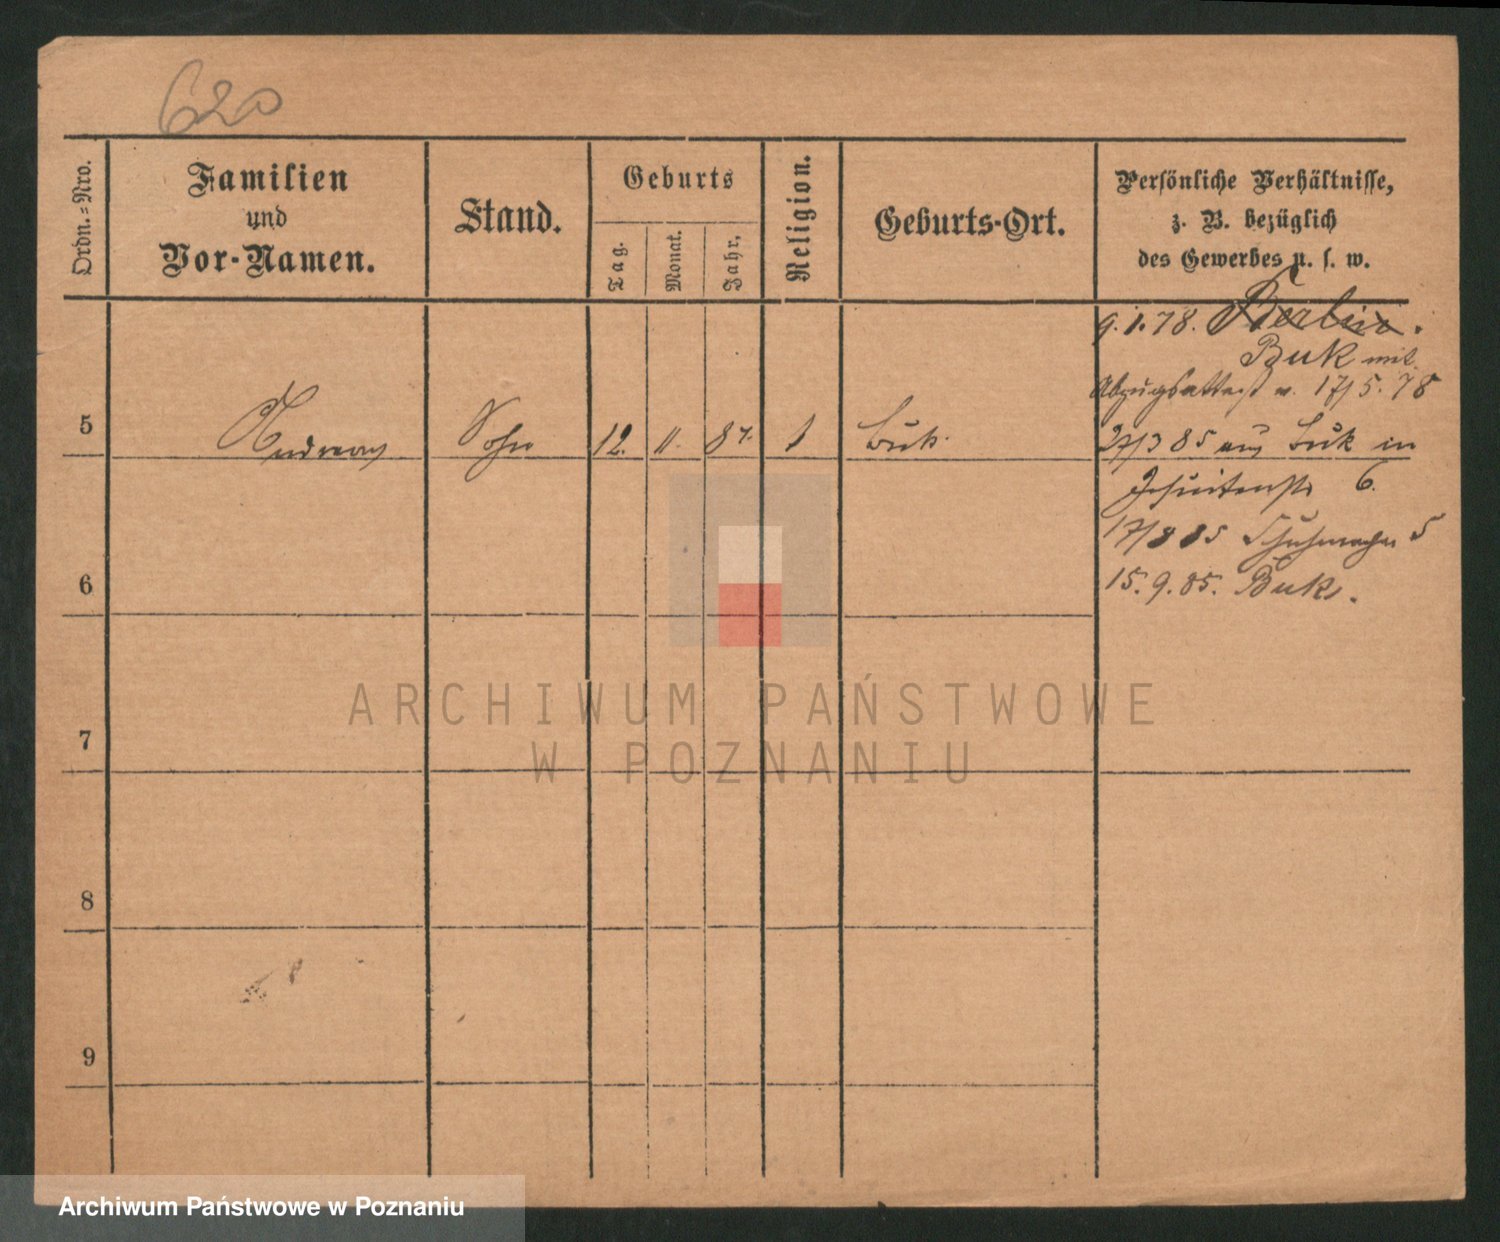 620
Ordn.=Nro.
Familien
und
Vor-Namen.
Stand.
Geburts
Tag.
Monat.
Jahr.
Religion.
Geburts-Ort.
Persönliche Verhältnisse,
z. B. bezüglich
des Gewerbes u. s. w.
9.1.78. Berlin.
Buk mit
Abzugsattest v. 17/5.78
5 Andreas Sohn 12. 11. Buk.
27/3 85 aus Buk in
Jesuitenstr 6.
17/8 85 Schuhmacher 5
15.9.85. Buk.
6
7
8
9
ARCHIWUM PAŃSTWOWE
W POZNANIU
Archiwum Państwowe w Poznaniu